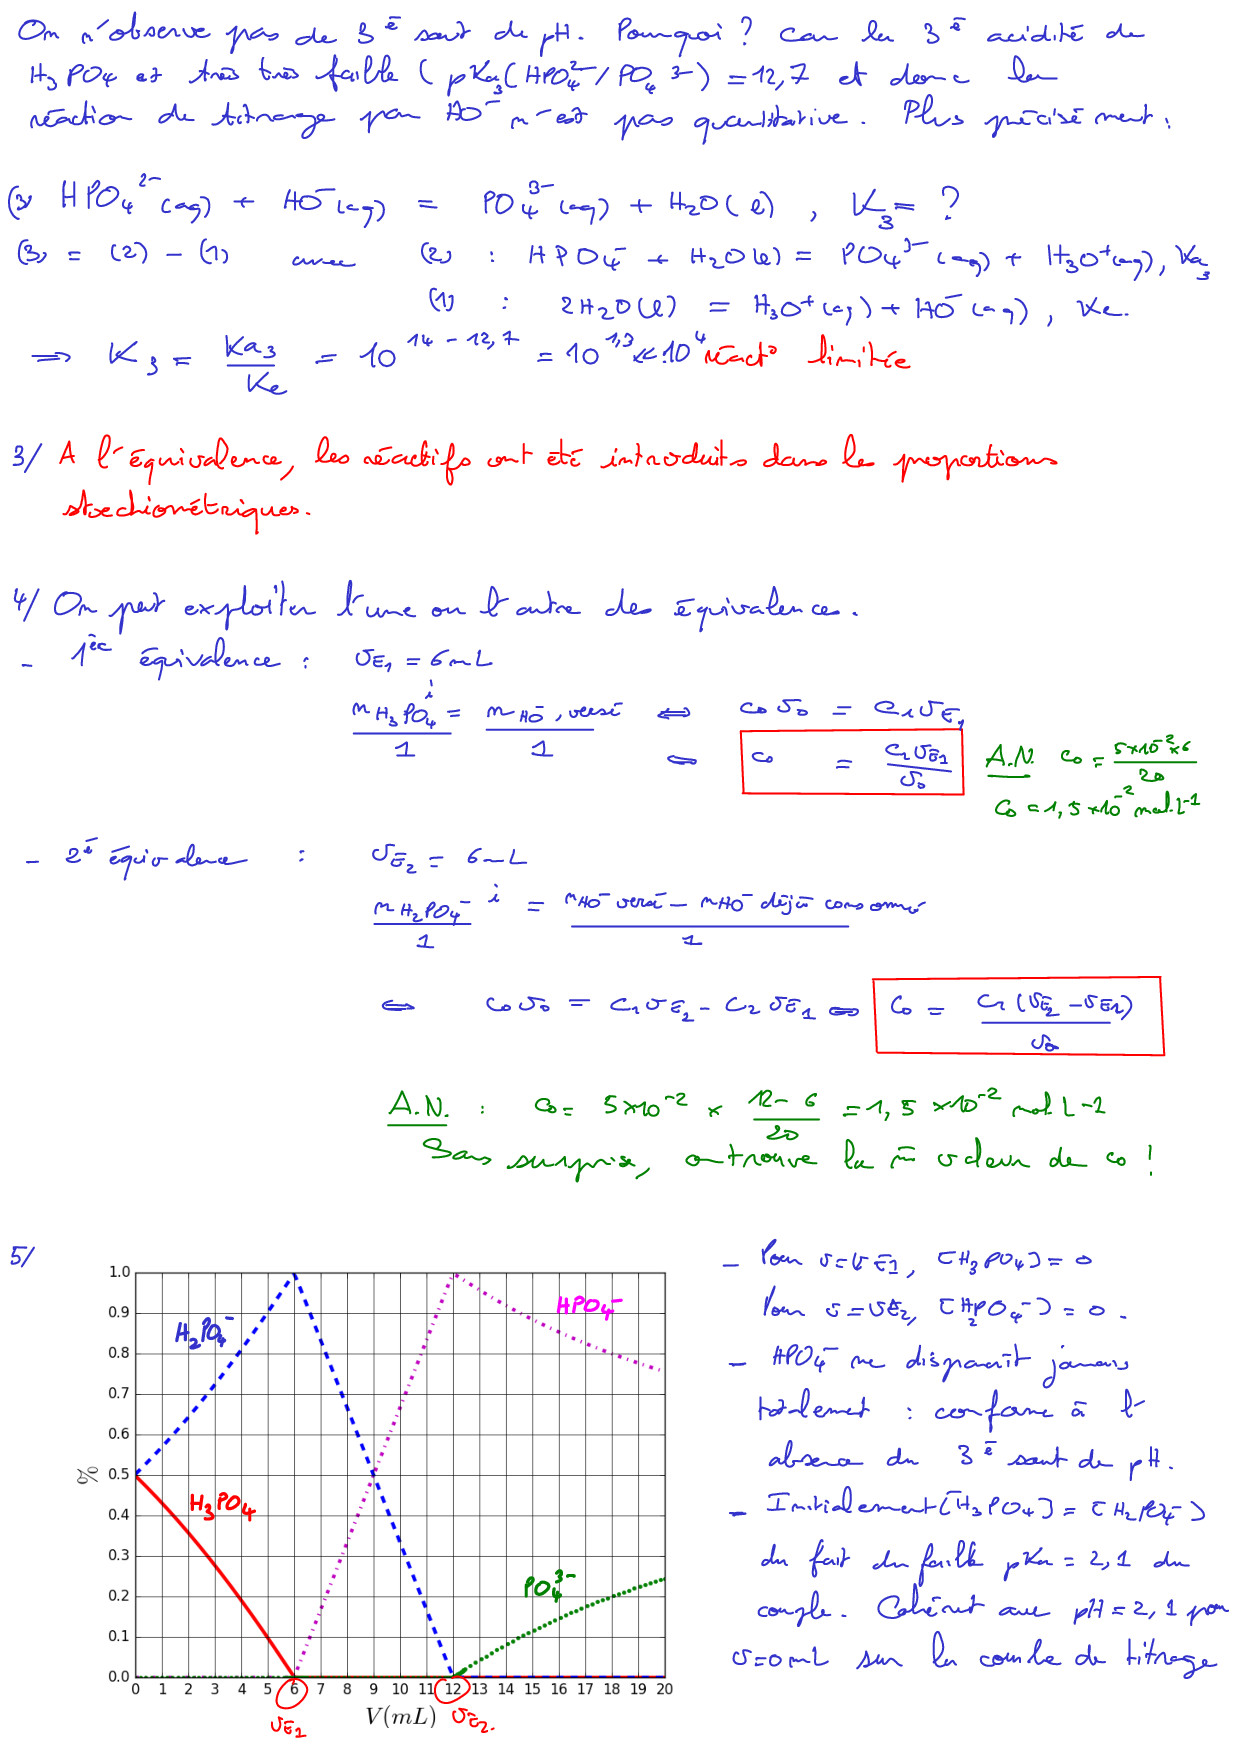 On n'observe pas de 3è saut de pH. Pourquoi ? Car la 3è acidité de
H₃PO₄ est très très faible ( pKa₃(HPO₄²⁻/PO₄³⁻) = 12,7 et donc la
réaction de titrage par HO⁻ n'est pas quantitative. Plus précisément :
(3) HPO₄²⁻(aq) + HO⁻(aq) = PO₄³⁻(aq) + H₂O(l) , K₃ = ?
(3) = (2) - (1) avec (2) : HPO₄⁻ + H₂O(l) = PO₄³⁻(aq) + H₃O⁺(aq), Ka₃
(1) : 2H₂O(l) = H₃O⁺(aq) + HO⁻(aq), Ke.
⇒ K₃ = Ka₃/Ke = 10^14-12,7 = 10^1,3 << 10⁴ réact° limitée
3/ A l'équivalence, les réactifs ont été introduits dans les proportions
stœchiométriques.
4/ On peut exploiter l'une ou l'autre des équivalences.
- 1ère équivalence : VE₁ = 6mL
nH₃PO₄ⁱ/1 = nHO⁻, versé/1 ⇔ c₀V₀ = C₁VE₁
⇔ c₀ = C₁VE₁/V₀ A.N. c₀ = 5×10⁻²×6/20
C₀ = 1,5×10⁻² mol.L⁻¹
- 2è équivalence : VE₂ = 6mL
nH₂PO₄⁻ⁱ/1 = nHO⁻ versé - nHO⁻ déjà consommé/1
⇔ c₀V₀ = C₁VE₂ - C₂VE₁ ⇔ C₀ = C₁(VE₂ - VE₁)/V₀
A.N. : c₀ = 5×10⁻² × 12-6/20 = 1,5×10⁻² mol.L-1
Sans surprise, on trouve la m̄ valeur de c₀ !
5/
1.0
0.9
0.8
0.7
0.6
0.5
0.4
0.3
0.2
0.1
0.0
%
H₂PO₄⁻
H₃PO₄
HPO₄⁻
PO₄³⁻
0 1 2 3 4 5 6 7 8 9 10 11 12 13 14 15 16 17 18 19 20
V(mL)
VE₁
VE₂.
- Pour v=VE₁, [H₃PO₄] = 0
Pour v=VE₂, [H₂PO₄⁻] = 0.
- HPO₄⁻ ne disparaît jamais
totalement : conforme à l'
absence du 3è saut de pH.
- Initialement [H₃PO₄] = [H₂PO₄⁻]
du fait du faible pKa = 2,1 du
couple. Cohérent avec pH = 2,1 pour
v=0mL sur la courbe de titrage